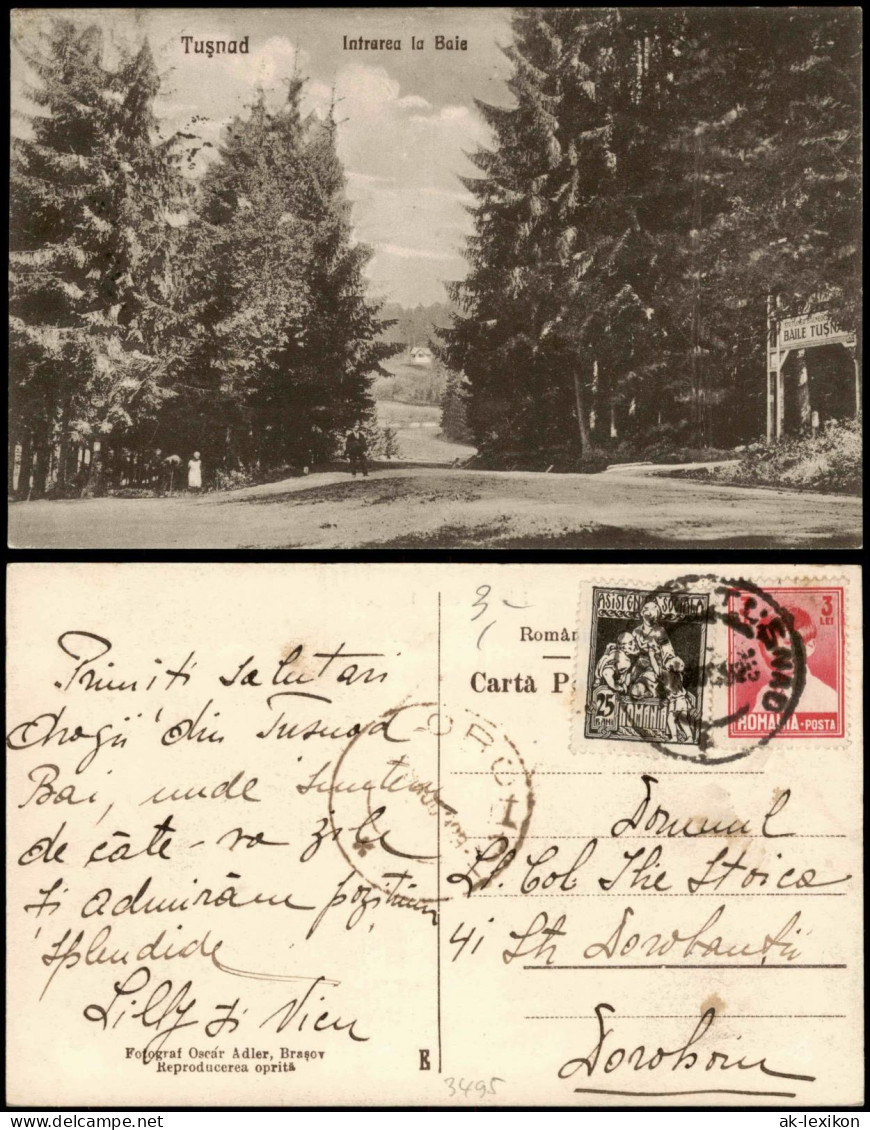 Tușnad
Intrarea la Baie
BAILE TUȘN
Primiți salutari
dragii din Tusnad
Bai, unde suntem
de câte-va zile
și admirăm pozițiuni
splendide
Lilly și Vicu
Fotograf Oscár Adler, Brașov
Reproducerea oprită
E
3495
3,-
Român
Carta P
ASISTENȚA SOCIALA
25
BANI
ROMANIA
3
LEI
ROMANIA·POSTA
TUSNAD
DOROHOI
1
Domnul
Lt. Col. Ilie Stoica
41 Str Dorobanții
Dorohoiu
ak-lexikon.com